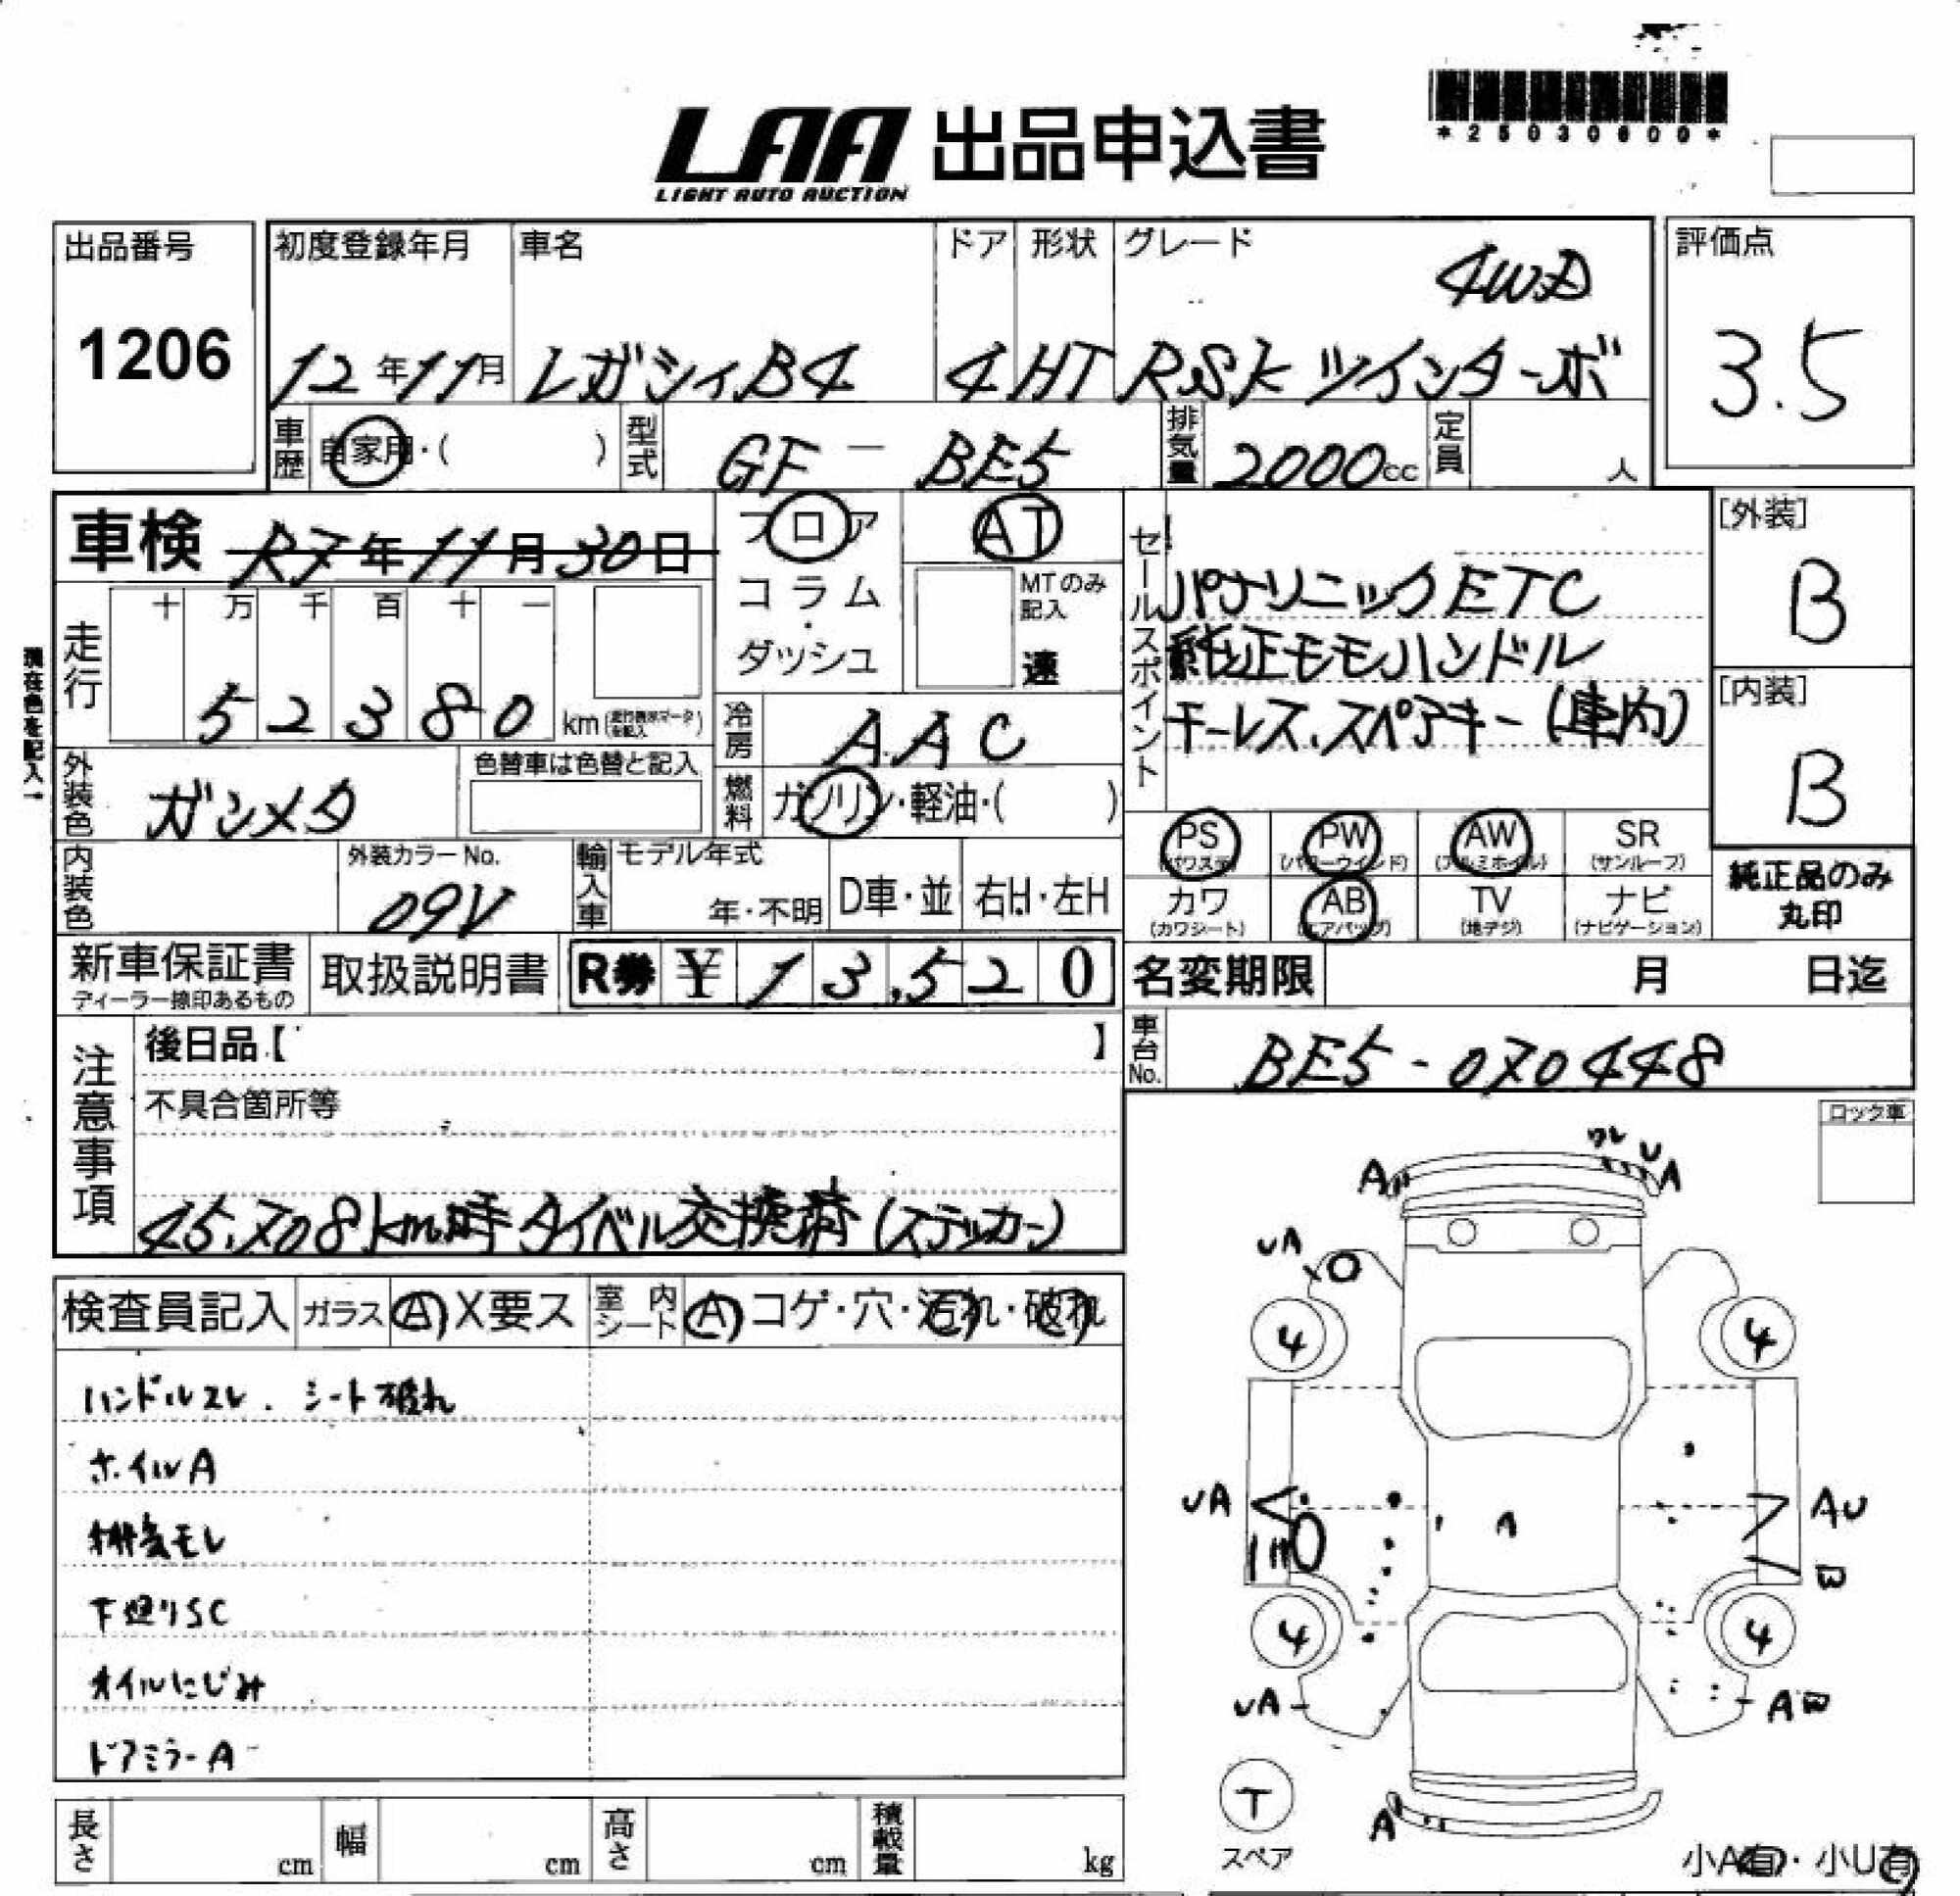 *25030600*
LAA 出品申込書
LIGHT AUTO AUCTION
出品番号
1206
初度登録年月
12年11月
車名
レガシィB4
ドア
4
形状
HT
グレード
4WD
RSK ツインターボ
評価点
3.5
車歴
自家用・( )
型式
GF - BE5
排気量
2000cc
定員
人
車検 R7年11月30日
フロア
コラム
・
ダッシュ
AT
MTのみ
記入
速
セールスポイント
パナソニックETC
純正モモハンドル
キーレス、スペアキー(車内)
[外装]
B
[内装]
B
純正品のみ
丸印
走行
十 万 千 百 十 一
5 2 3 8 0
km
冷房
AAC
外装色
ガンメタ
色替車は色替と記入
燃料
ガソリン・軽油・( )
内装色
外装カラーNo.
09V
輸入車
モデル年式
年・不明
D車・並
右H・左H
PS
(パワステ)
PW
(パワーウインド)
AW
(アルミホイル)
SR
(サンルーフ)
カワ
(カワシート)
AB
(エアバッグ)
TV
(地デジ)
ナビ
(ナビゲーション)
新車保証書
ディーラー捺印あるもの
取扱説明書
R券 ¥ 13,520
名変期限 月 日迄
車台No.
BE5-070448
注意事項
後日品【 】
不具合箇所等
45,708km時タイベル交換済(ステッカー)
ロック車
検査員記入
ガラス
A X要ス
室内シート
A コゲ・穴・汚れ・破れ
ハンドルスレ、シート破れ
ホイルA
排気モレ
下廻りSC
オイルにじみ
ドアミラーA
ワレ U
A A
UA
4 4
UA AU
B
4 4
UA AB
T
スペア
A
小A有・小U有
長さ cm
幅 cm
高さ cm
積載量 kg